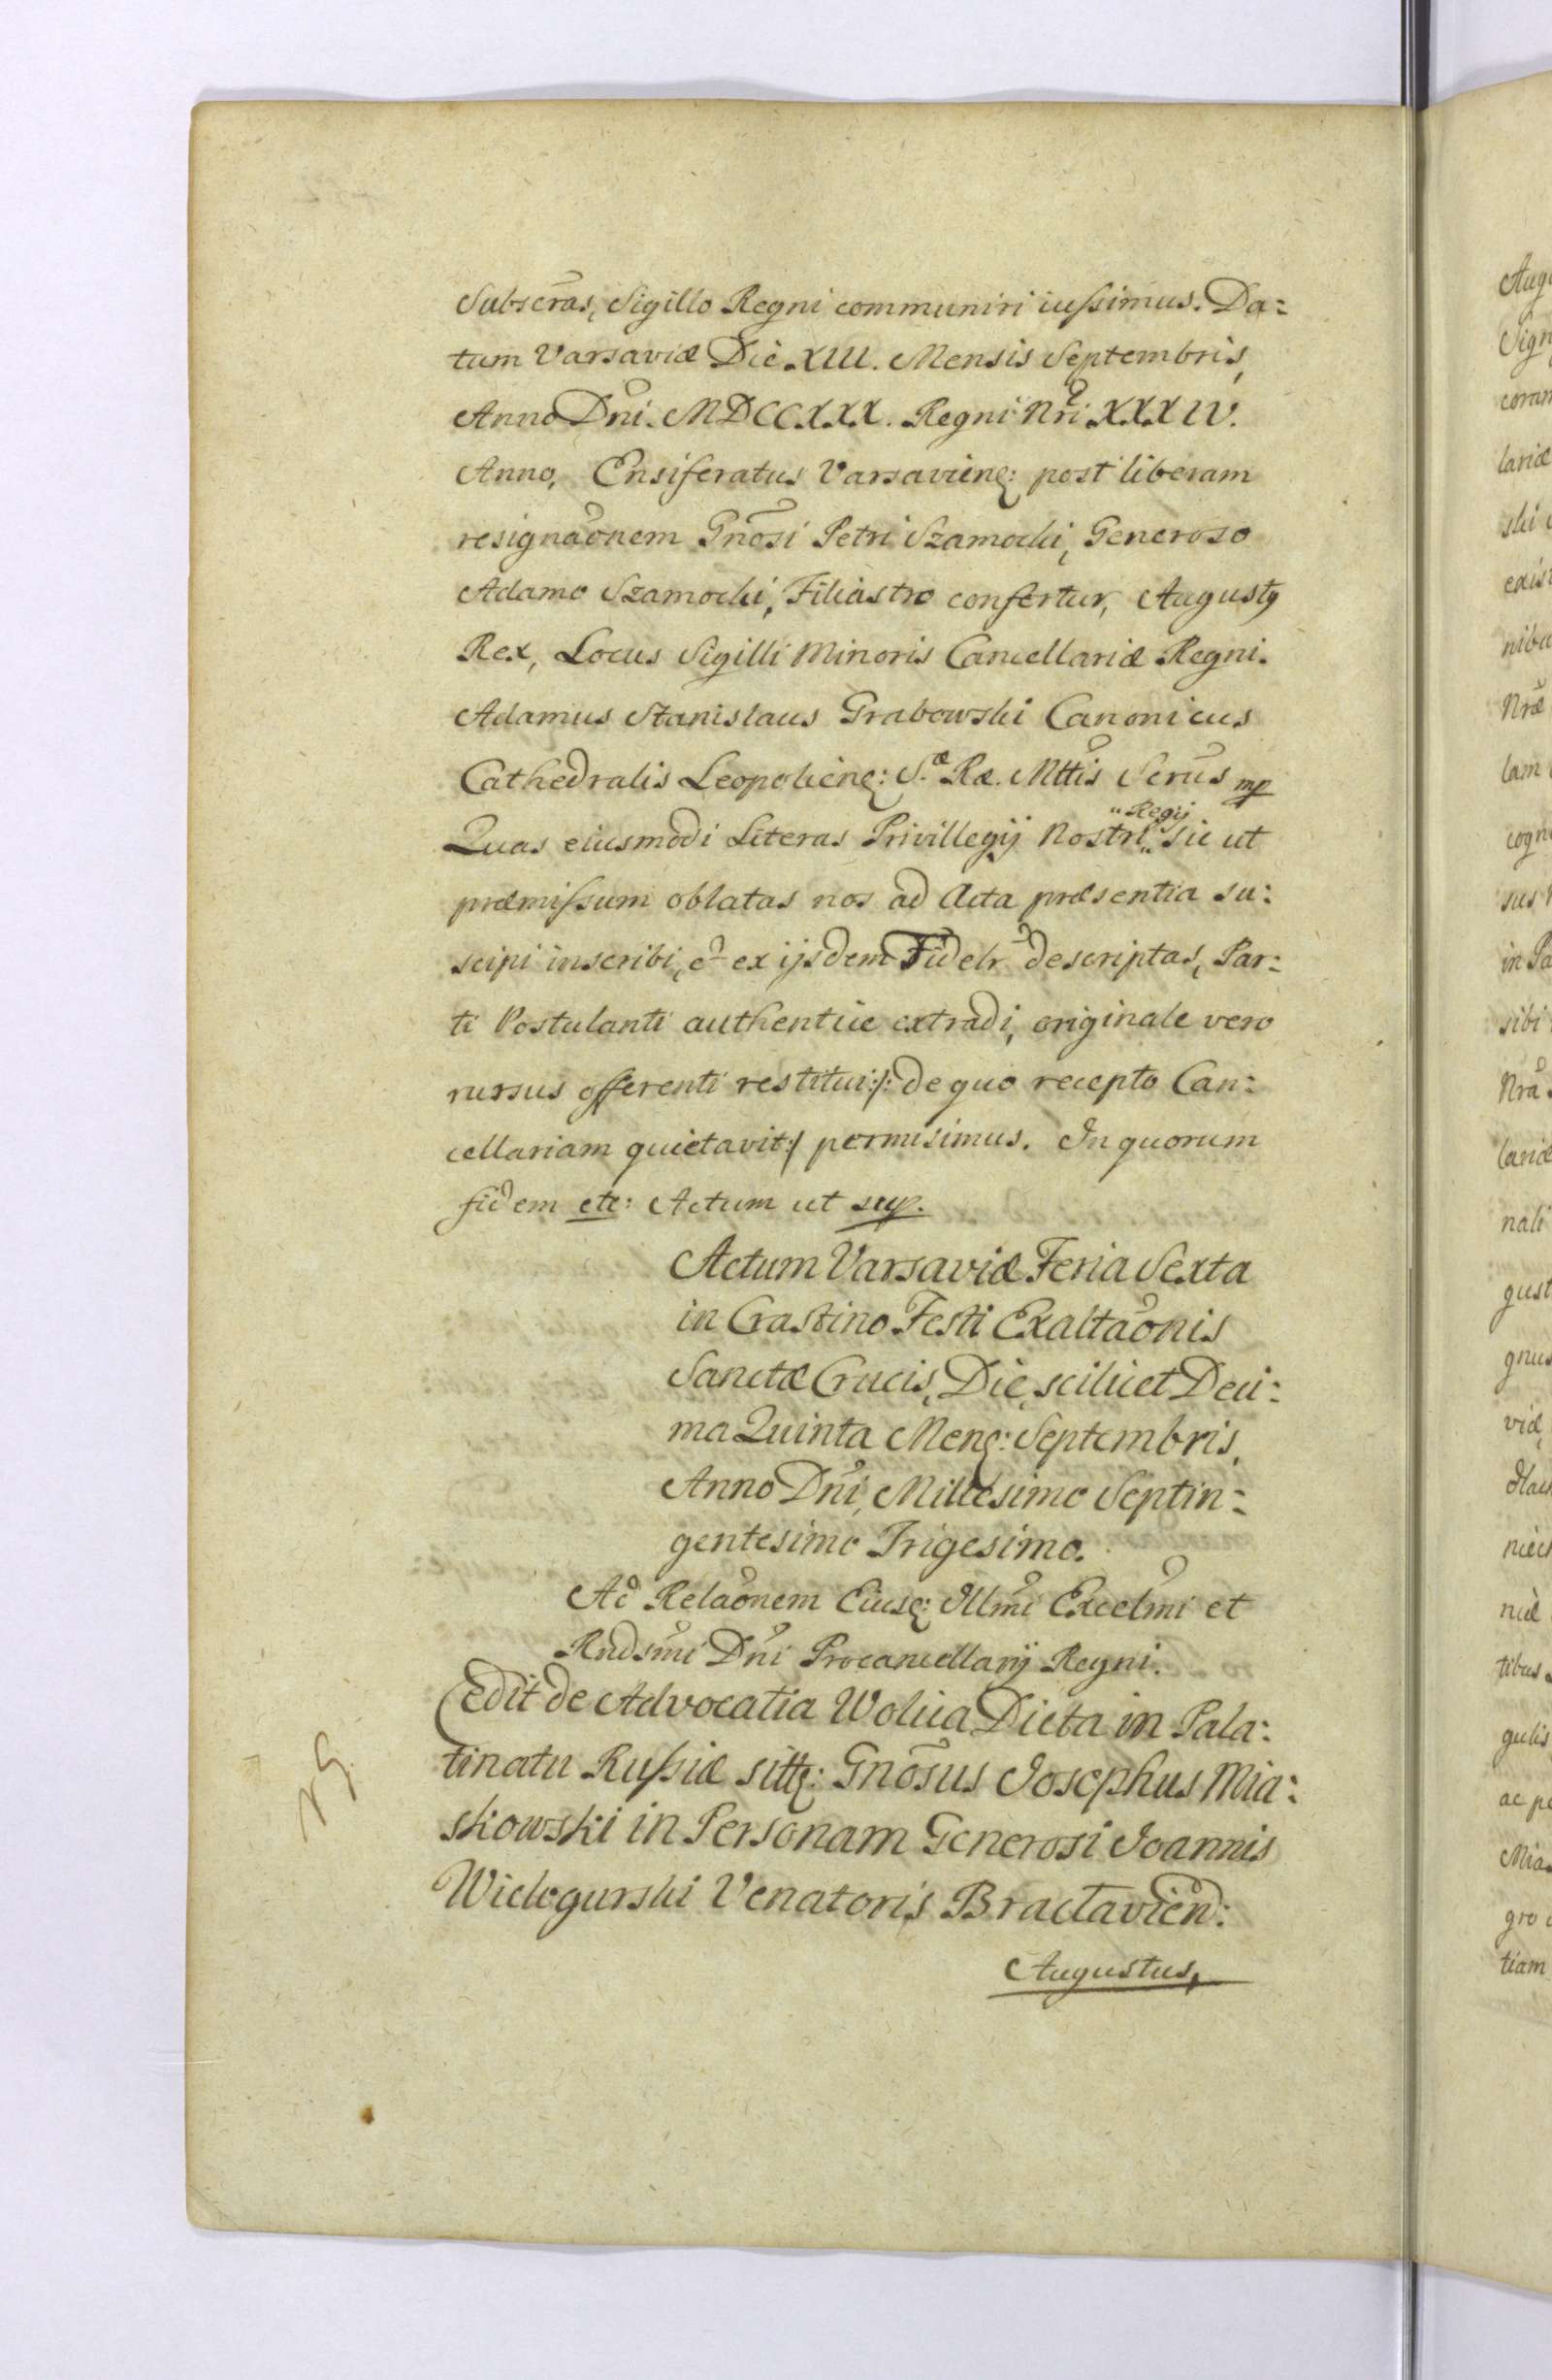 Subscras, Sigillo Regni communiri iussimus. Da:
tum Varsaviæ Die XIII. Mensis Septembris,
Anno Dni. MDCCXXX. Regni Nri XXXIV.
Anno, Ensiferatus Varsavienę: post liberam
resignaonem Gnosi Petri Szamocki, Generoso
Adamo Szamocki, Filiastro confertur, Augustꝰ
Rex, Locus Sigilli Minoris Cancellariæ Regni.
Adamus Stanislaus Grabowski Canonicus
Cathedralis Leopolienę: S.æ Ræ. Mttis Scrus mp
Quas eiusmodi Literas Privillegij Nostri "Regij" sic ut
præmissum oblatas nos ad Acta præsentia su:
scipi inscribi, et ex ijsdem Fidelr descriptas, Par:
ti Postulanti authentice extradi, originale vero
rursus offerenti restitui:/: de quo recepto Can:
cellariam quietavit:/ permisimus. In quorum
fidem etc: Actum ut sup.
Actum Varsaviæ Feria Sexta
in Crastino Festi Exaltaonis
Sanctæ Crucis, Die, scilicet Deci:
ma Quinta Menę: Septembris,
Anno Dni, Millesimo Septin:
gentesimo Trigesimo.
Ad Relaonem Eiusę: Illmi Excelmi et
Rndsmi Dni Procancellarij Regni.
Cedit de Advocatia Wolica Dicta in Pala:
tinatu Russiæ sittę: Gnosus Josephus Mia:
skowski in Personam Generosi Joannis
Wielogurski Venatoris Bractavien:
Augustus,